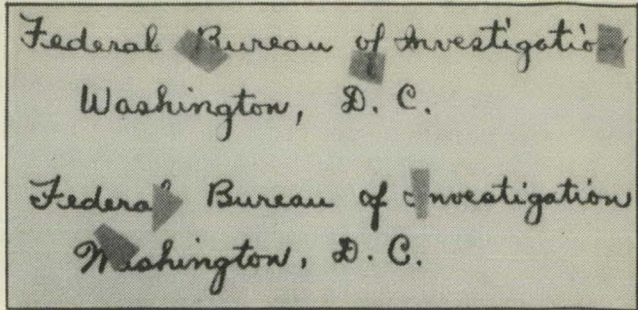 Federal Bureau of Investigation
Washington, D. C.
Federal Bureau of Investigation
Washington, D. C.